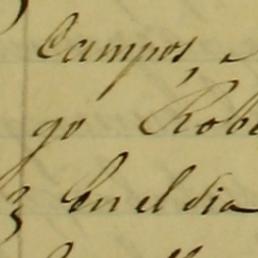 Campos,
go Rob
z En el dia